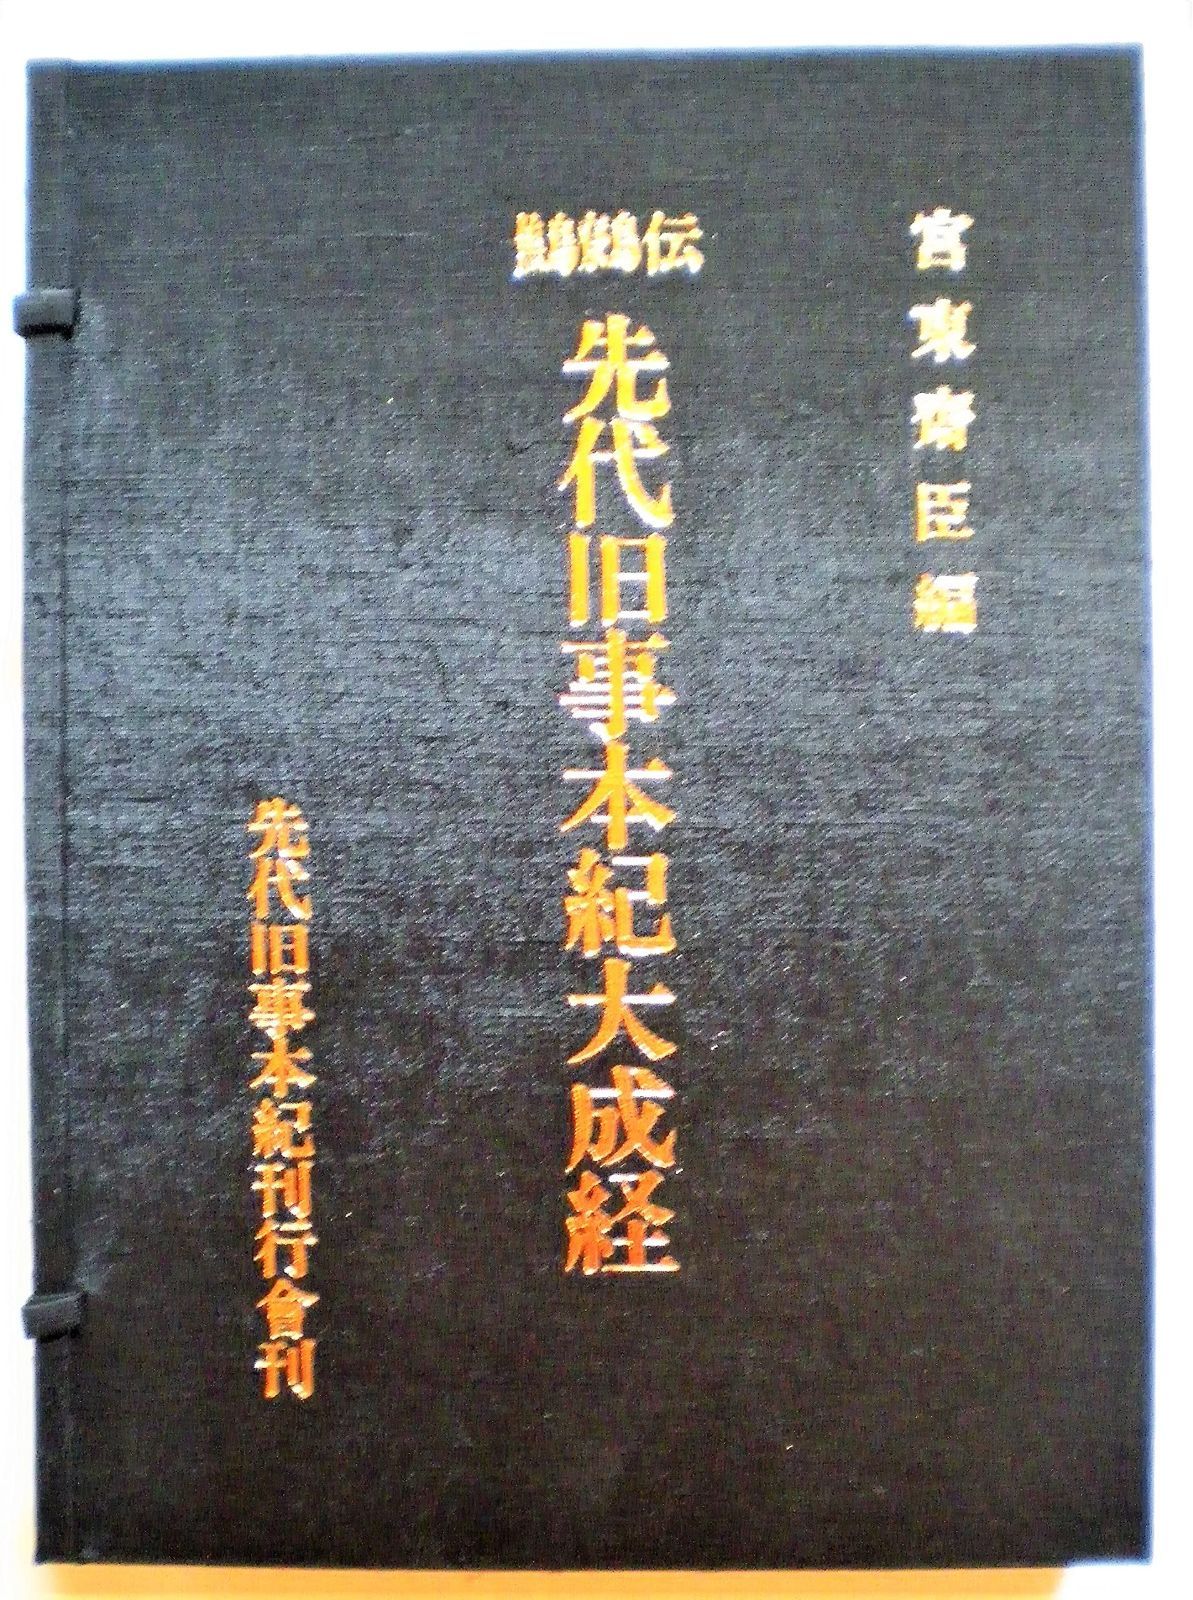 宮東齋臣編
鷦鷯伝
先代旧事本紀大成経
先代旧事本紀刊行會刊